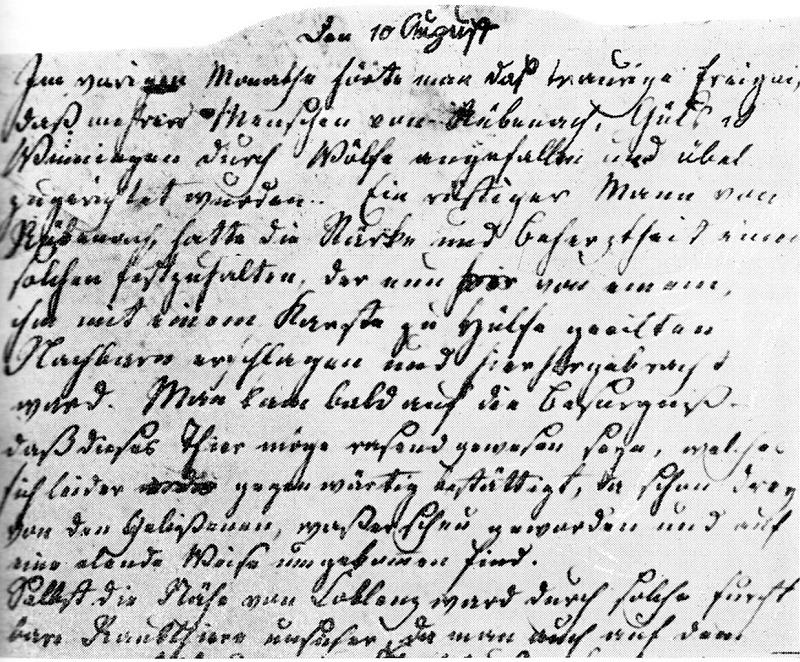 Den 10 August
Im vorigen Monathe hörte man das traurige Ereigni
daß mehrere Menschen von Rübenach, Güls u
Winningen durch Wölfe angefallen und übel
zugerichtet wurden. Ein rüstiger Mann von
Rübenach, hatte die Stärke und Beherztheit einen
solchen festzuhalten, der nun von einem,
ihm mit einem Karste zu Hülfe geeilten
Nachbarn erschlagen und hierher gebracht
ward. Man kam bald auf die Besorgniß
daß dieses Thier möge rasend gewesen seyn, welches
sich leider gegenwärtig bestättigt, da schon drey
von den Gebißenen, waßerscheu geworden und auf
eine elende Weise umgekomen sind.
Selbst die Nähe von Coblenz ward durch solche furcht
bare Raubthiere unsicher, da man auch auf dem